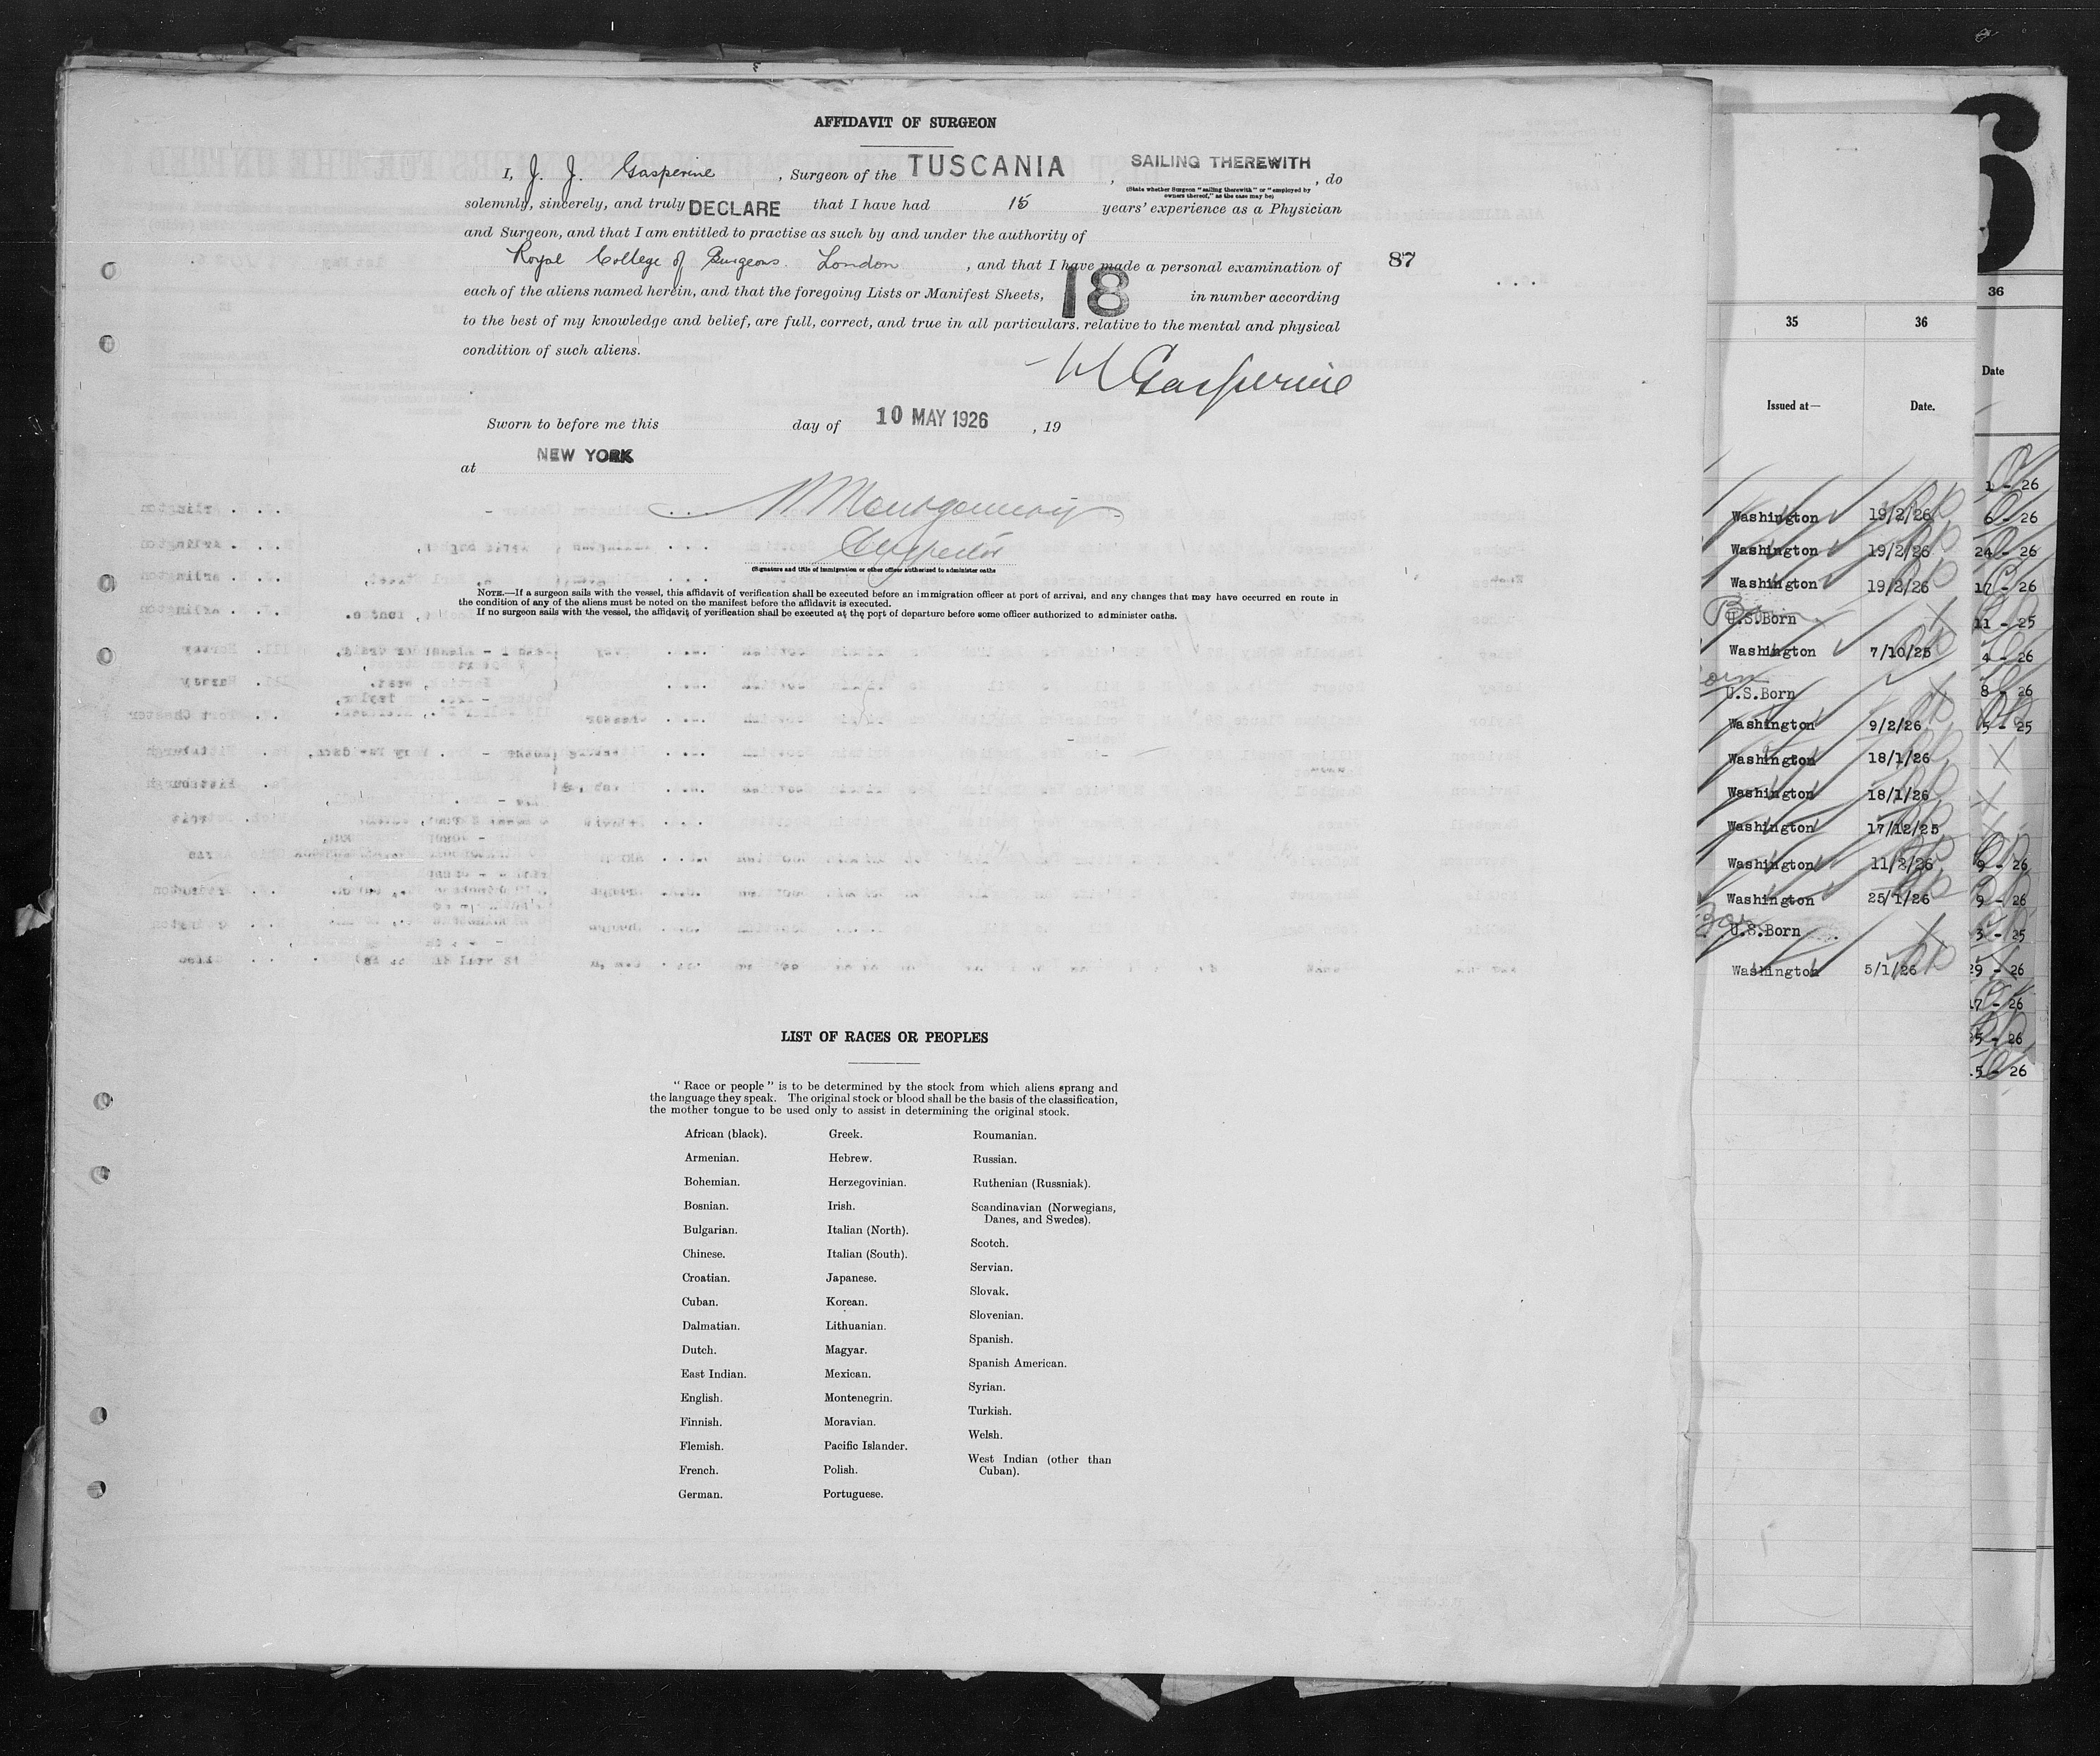 AFFIDAVIT OF SURGEON
I, J. J. Gasperine, Surgeon of the TUSCANIA, SAILING THEREWITH, do
(State whether Surgeon "sailing therewith" or "employed by
owners thereof," as the case may be)
solemnly, sincerely, and truly DECLARE that I have had 15 years' experience as a Physician
and Surgeon, and that I am entitled to practise as such by and under the authority of
Royal College of Surgeons. London, and that I have made a personal examination of
87
each of the aliens named herein, and that the foregoing Lists or Manifest Sheets, 18 in number according
to the best of my knowledge and belief, are full, correct, and true in all particulars, relative to the mental and physical
condition of such aliens.
Gasperine
Sworn to before me this day of 10 MAY 1926, 19
at NEW YORK
Montgomery
Inspector
(Signature and title of immigration or other officer authorized to administer oaths
NOTE.—If a surgeon sails with the vessel, this affidavit of verification shall be executed before an immigration officer at port of arrival, and any changes that may have occurred en route in
the condition of any of the aliens must be noted on the manifest before the affidavit is executed.
If no surgeon sails with the vessel, the affidavit of verification shall be executed at the port of departure before some officer authorized to administer oaths.
LIST OF RACES OR PEOPLES
"Race or people" is to be determined by the stock from which aliens sprang and
the language they speak. The original stock or blood shall be the basis of the classification,
the mother tongue to be used only to assist in determining the original stock.
African (black).
Armenian.
Bohemian.
Bosnian.
Bulgarian.
Chinese.
Croatian.
Cuban.
Dalmatian.
Dutch.
East Indian.
English.
Finnish.
Flemish.
French.
German.
Greek.
Hebrew.
Herzegovinian.
Irish.
Italian (North).
Italian (South).
Japanese.
Korean.
Lithuanian.
Magyar.
Mexican.
Montenegrin.
Moravian.
Pacific Islander.
Polish.
Portuguese.
Roumanian.
Russian.
Ruthenian (Russniak).
Scandinavian (Norwegians,
Danes, and Swedes).
Scotch.
Servian.
Slovak.
Slovenian.
Spanish.
Spanish American.
Syrian.
Turkish.
Welsh.
West Indian (other than
Cuban).
35 36
Issued at— Date.
Washington 19/2/26
Washington 19/2/26
Washington 19/2/26
U.S.Born
Washington 7/10/25
U.S.Born
Washington 9/2/26
Washington 18/1/26
Washington 18/1/26
Washington 17/12/25
Washington 11/2/26
Washington 25/1/26
U.S.Born
Washington 5/1/26
36
Date
1 - 26
6 - 26
24 - 26
17 - 26
11 - 25
4 - 26
8 - 26
5 - 25
9 - 26
9 - 26
3 - 25
29 - 26
17 - 26
5 - 26
5 - 26